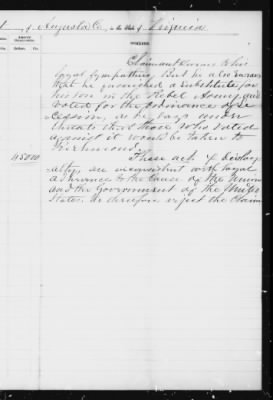 of Augusta Co, in the State of Virginia
REMARKS.
Claimant swears to his
loyal sympathies, but he also swears
that he furnished a substitute for
his son in the Rebel Army and
voted for the ordinance of Se-
cession, as he says under
threats that those who voted
against it would be taken to
Richmond.
450.00 These acts of disloy-
alty, are inconsistent with loyal
adherence to the cause of the Union
and the Government of the United
States. We therefore reject the Claim